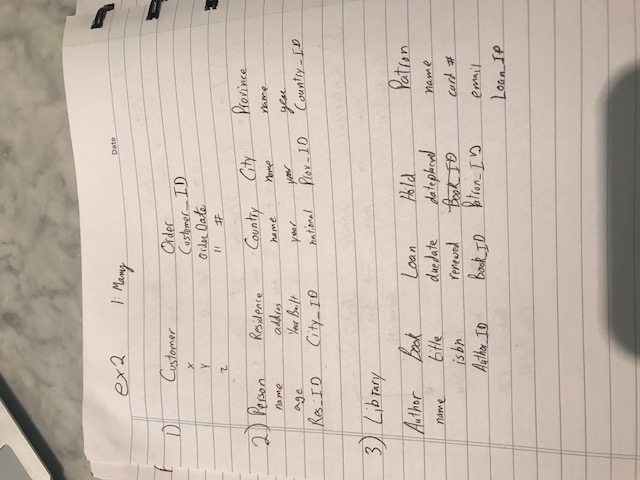 ex2 1: Many Date
1) Customer Order
x Customer_ID
Y Order Date
z " #
2) Person Residence Country City Province
name addres name name name
age Year Built year year year
Res_ID City_ID national Prov_ID Country_ID
3) Library
Author Book Loan Hold Patron
name title duedate dateplaced name
isbn renewed Book_ID card #
Author_ID Book_ID Patron_ID email
Loan_ID